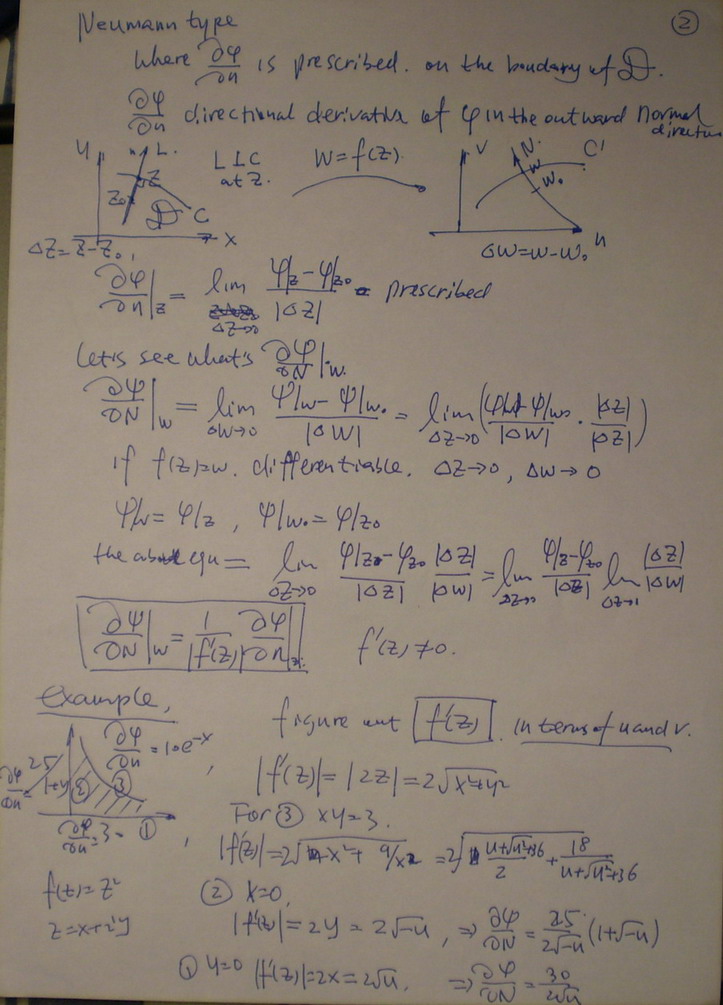 ②
Neumann type
where ∂φ/∂n is prescribed. on the boundary of D.
∂φ/∂n directional derivative of φ in the outward normal direction
y L. z z₀ D C x
L⊥C at z.
W=f(z).
v N. w w₀ C' u
Δz=z-z₀,
Δw=w-w₀
∂φ/∂n|z = lim Δz→0 (φ|z-φ|z₀)/|Δz| = prescribed
Let's see what's ∂φ/∂N|w.
∂φ/∂N|w = lim Δw→0 (φ|w-φ|w₀)/|Δw| = lim Δz→0 ((φ|w-φ|w₀)/|Δw| · |Δz|/|Δz|)
if f(z)=w. differentiable. Δz→0, Δw→0
φ|w=φ|z, φ|w₀=φ|z₀
the above equ = lim Δz→0 (φ|z-φz₀)/|Δz| |Δz|/|Δw| = lim Δz→0 (φ|z-φz₀)/|Δz| lim |Δz|/|Δw|
∂φ/∂N|w = 1/|f'(z)| ∂φ/∂n|z. f'(z)≠0.
Example,
figure out f'(z). in terms of u and v.
∂φ/∂n = 10e^-x
∂φ/∂n = 25(1+y) ② ③
∂φ/∂n=3 ①
|f'(z)|=|2z|=2√x²+y²
For ③ xy=3.
|f'(z)|=2√x²+9/x² =2√(u+√u²+36)/2+18/(u+√u²+36)
f(z)=z²
② x=0,
z=x+iy
|f'(z)|=2y=2√-u, ⇒ ∂φ/∂N=25/(2√-u)(1+√-u)
① y=0 |f'(z)|=2x=2√u. ⇒ ∂φ/∂N=30/(2√u)